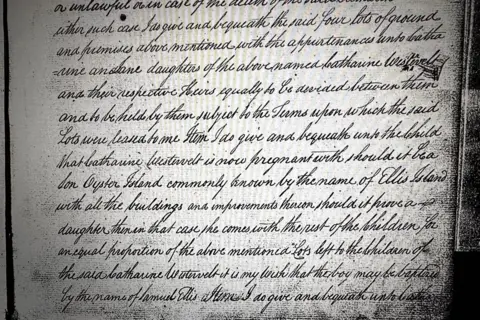 or unlawful or in case of the death of the said
either such case I do give and bequeath the said four Lots of ground
and premises above mentioned with the appurtenances unto Catha
=rine and Jane daughters of the above named Catharine Westervelt
and their respective Heirs equally to be devided between them
and to be held by them subject to the Terms upon which the said
Lots were leased to me Item I do give and bequeath unto the Child
that Catharine Westervelt is now pregnant with should it be a
son Oyster Island commonly known by the name of Ellis Island
with all the buildings and improvements thereon should it prove a
daughter then in that case she comes with the rest of the Children for
an equal proportion of the above mentioned Lots left to the Children of
the said Catharine Westervelt it is my wish that the boy may be baptised
by the name of Samuel Ellis Item I do give and bequeath unto